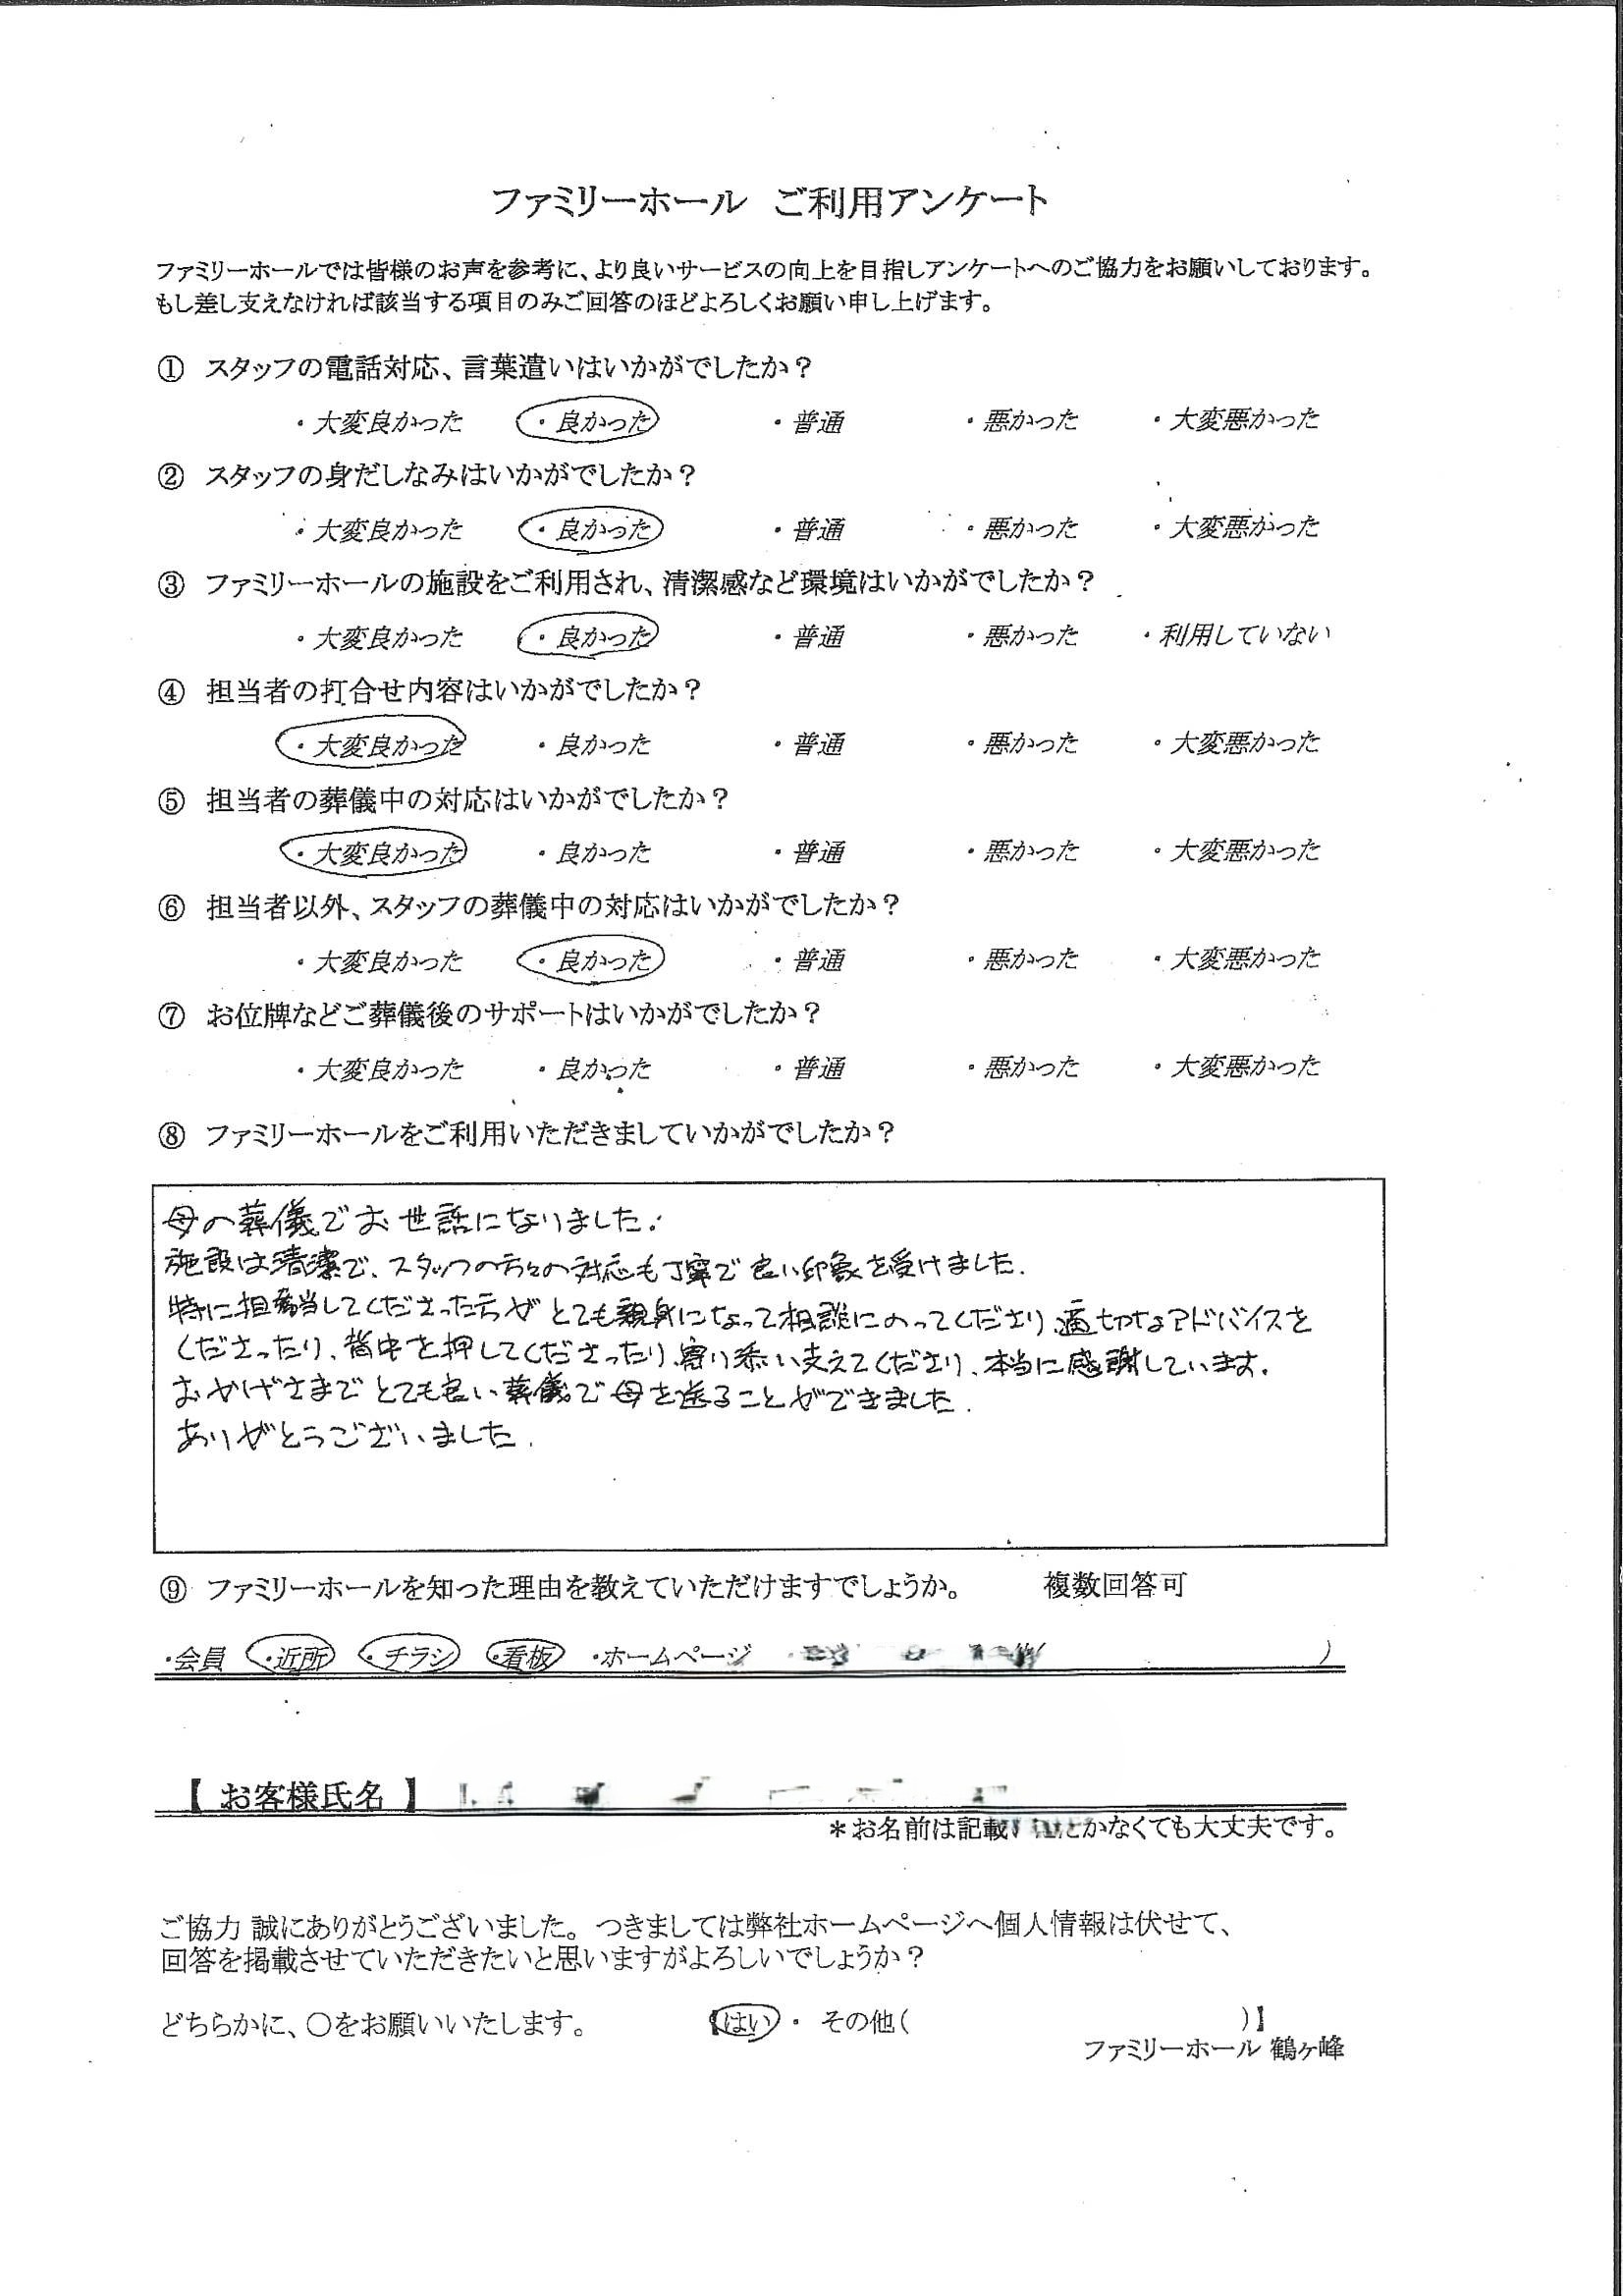 ファミリーホール ご利用アンケート
ファミリーホールでは皆様のお声を参考に、より良いサービスの向上を目指しアンケートへのご協力をお願いしております。
もし差し支えなければ該当する項目のみご回答のほどよろしくお願い申し上げます。
① スタッフの電話対応、言葉遣いはいかがでしたか？
・大変良かった ・良かった ・普通 ・悪かった ・大変悪かった
② スタッフの身だしなみはいかがでしたか？
・大変良かった ・良かった ・普通 ・悪かった ・大変悪かった
③ ファミリーホールの施設をご利用され、清潔感など環境はいかがでしたか？
・大変良かった ・良かった ・普通 ・悪かった ・利用していない
④ 担当者の打合せ内容はいかがでしたか？
・大変良かった ・良かった ・普通 ・悪かった ・大変悪かった
⑤ 担当者の葬儀中の対応はいかがでしたか？
・大変良かった ・良かった ・普通 ・悪かった ・大変悪かった
⑥ 担当者以外、スタッフの葬儀中の対応はいかがでしたか？
・大変良かった ・良かった ・普通 ・悪かった ・大変悪かった
⑦ お位牌などご葬儀後のサポートはいかがでしたか？
・大変良かった ・良かった ・普通 ・悪かった ・大変悪かった
⑧ ファミリーホールをご利用いただきましていかがでしたか？
母の葬儀でお世話になりました.
施設は清潔で、スタッフの方々の対応も丁寧で良い印象を受けました.
特に担当してくださった方がとても親身になって相談にのってくださり、適切なアドバイスを
くださったり、背中を押してくださったり、寄り添い支えてくださり、本当に感謝しています.
おかげさまでとても良い葬儀で母を送ることができました.
ありがとうございました.
⑨ ファミリーホールを知った理由を教えていただけますでしょうか。 複数回答可
・会員 ・近所 ・チラシ ・看板 ・ホームページ )
【 お客様氏名 】
＊お名前は記載 かなくても大丈夫です。
ご協力 誠にありがとうございました。つきましては弊社ホームページへ個人情報は伏せて、
回答を掲載させていただきたいと思いますがよろしいでしょうか？
どちらかに、〇をお願いいたします。 【はい ・ その他( )】
ファミリーホール 鶴ヶ峰